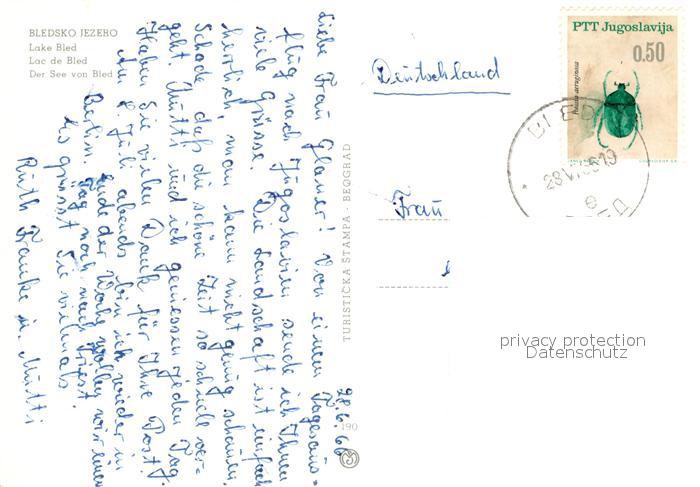 BLEDSKO JEZERO
Lake Bled
Lac de Bled
Der See von Bled
28.6.66
Liebe Frau Glaner! Von einem Tagesaus=
flug nach Jugoslavien sende ich Ihnen
viele Grüsse. Die Landschaft ist einfach
herrlich, man kann nicht genug schauen.
Schade, daß die schöne Zeit so schnell ver=
geht. Mutti und ich geniessen jeden Tag.
Haben Sie vielen Dank für Ihre Post.
Am 2. Juli abends bin ich wieder in
Berlin. Ende der Woche wollen wir einen
Tag noch nach Triest.
Es grüsst Sie vielmals
Ruth Franke u. Mutti
TURISTIČKA ŠTAMPA - BEOGRAD
190
Deutschland
Frau
PTT Jugoslavija
0.50
BLED
28.VI.66 19
e
БЛЕД
privacy protection
Datenschutz